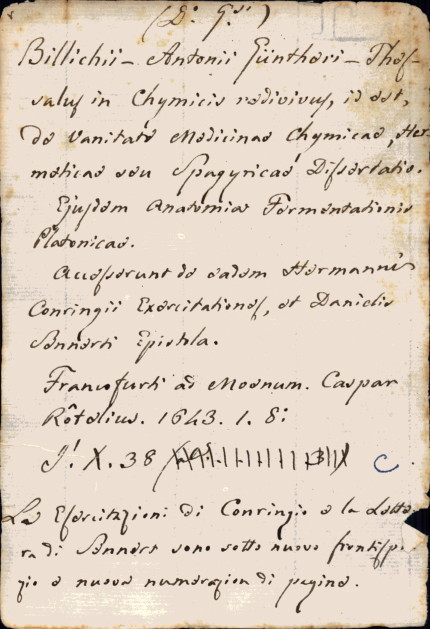 (D. G.)
Billichii - Antonii Güntheri - Thes-
salus in Chymicis redivivus, id est,
de Vanitate Medicinae Chymicae, Her-
meticae seu Spagyricae Dissertatio.
Ejusdem Anatomia Fermentationis
Platonicae.
Accesserunt de eadem Hermanni
Conringii Exercitationes, et Danielis
Sennerti Epistola.
Francofurti ad Moenum. Caspar
Rôtelius. 1643. 1. 8:
J! X. 38
C.
Le Esercitazioni di Conringio e la Lette-
ra di Sennert sono sotto nuovo frontispi-
zio e nuova numerazion di pagine.